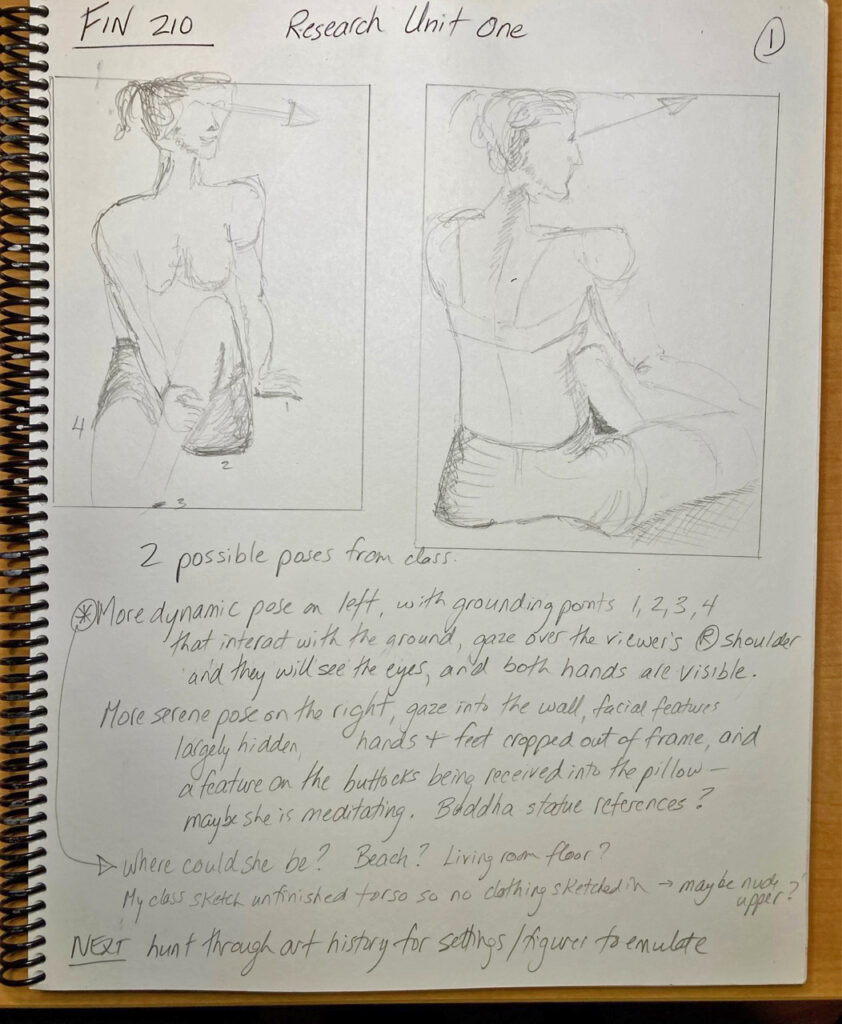 FIN 210
Research Unit One
1
4
1
2
3
2 possible poses from class.
* More dynamic pose on left, with grounding points 1, 2, 3, 4
that interact with the ground, gaze over the viewer's R shoulder
and they will see the eyes, and both hands are visible.
More serene pose on the right, gaze into the wall, facial features
largely hidden, hands + feet cropped out of frame, and
a feature on the buttocks being received into the pillow –
maybe she is meditating. Buddha statue references?
Where could she be? Beach? Living room floor?
My class sketch unfinished torso so no clothing sketched in → maybe nude
upper?
NEXT hunt through art history for settings/figures to emulate